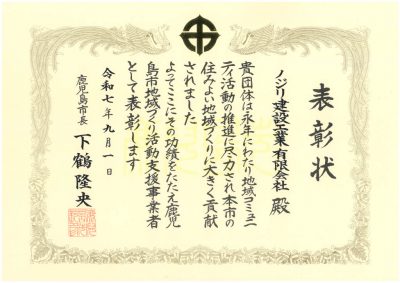 表彰状
ノジリ建設工業有限会社 殿
貴団体は永年にわたり地域コミュニ
ティ活動の推進に尽力され本市の
住みよい地域づくりに大きく貢献
されました
よってここにその功績をたたえ鹿児
島市地域づくり活動支援事業者
として表彰します
令和七年九月一日
鹿児島市長 下鶴隆央